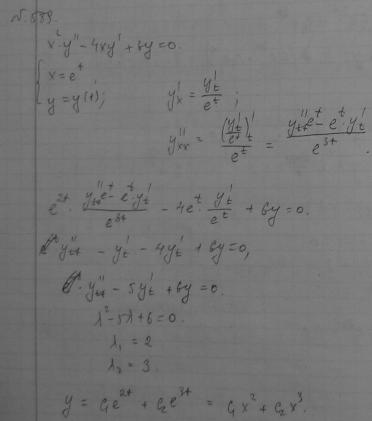 N. 589.
x² y'' - 4xy' + 6y = 0.
{ x = e^t
y = y(t);
y'_x = y'_t / e^t ;
y''_xx = (y'_t / e^t)'_t / e^t = (y''_tt e^t - e^t · y'_t) / e^{3t}
e^{2t} · (y''_tt e^t - e^t · y'_t) / e^{3t} - 4e^t · y'_t / e^t + 6y = 0.
y''_tt - y'_t - 4y'_t + 6y = 0,
y''_tt - 5y'_t + 6y = 0.
λ² - 5λ + 6 = 0.
λ₁ = 2
λ₂ = 3.
y = C₁e^{2t} + C₂e^{3t} = C₁x² + C₂x³.